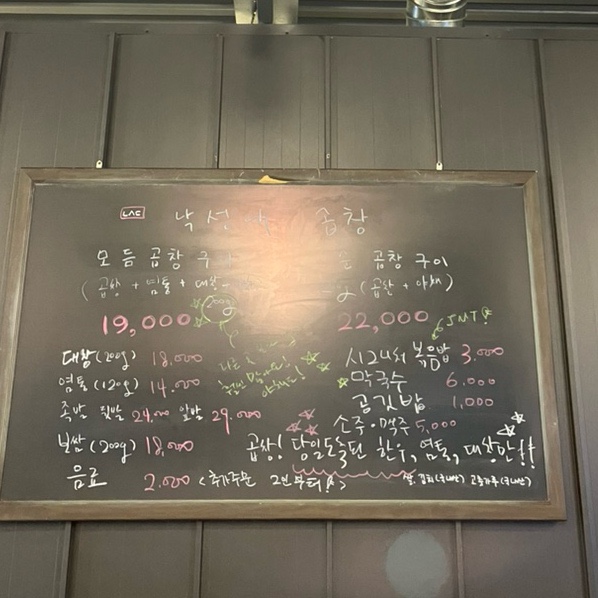 LAC 낙성 곱창
모듬 곱창 구
(곱창 + 염통 + 대창
200g
19,000
곱창 구이
(곱창 + 야채)
22,000
JMT
대창(200g) 18.000
염통(120g) 14.000
족발 뒷발 24.000 앞발 29.000
불쌈(200g) 18,000
음료 2.000 <추가주문 2인부터!>
볶음밥 3.000
막국수 6.000
공깃밥 1,000
소주·맥주 5,000
곱창! 당일도축된 한우, 염통, 대창만!!
쌀, 김치(국내산) 고춧가루(국내산)